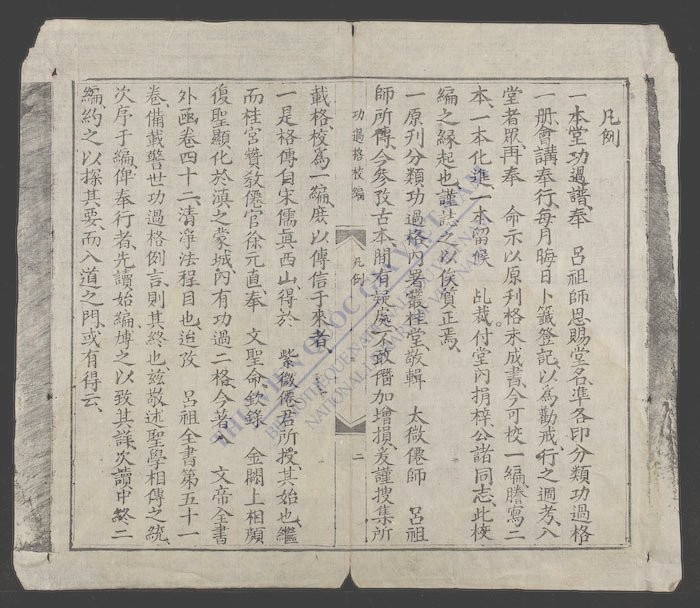 凡例
一本堂功過譜、奉　呂祖師恩賜堂名、準各印分類功過格
一册、會講奉行、每月晦日卜籤登記、以為勸戒、行之週考、入
堂者眾、再奉　命示以原刋格未成書、今可校一編、謄寫二
本、一本化進、一本留候　乩裁、付堂內捐梓、公諸同志、此校
編之緣起也、謹誌之以俟質正焉、
一原刋分類功過格、內署叢桂堂敬輯　太微僊師　呂祖
師所傳、今參攷古本、間有疑處、不敢僭加增損、爰謹搜集所
功過格校編
凡例
二
載格、校爲一編、庶以傳信于來者、
一是格傳自宋儒眞西山、得於　紫微僊君所授、其始也、繼
而桂宮贊教僊官徐元直、奉　文聖命欽錄　金闕上相顏
復聖顯化於滇之蒙城、內有功過二格、今著　文帝全書
外函卷四十二、清淨法程目也、迨攷　呂祖全書第五十一
卷、備載警世功過格例言、則其終也、茲敬述聖學相傳之統、
次序于編、俾奉行者、先讀始編、博之以致其詳、次讀中終二
編、約之以探其要、而入道之門、或有得云、
THƯ VIỆN QUỐC GIA VIỆT NAM
BIBLIOTHEQUE NATIONALE DU VIETNAM
NATIONAL LIBRARY OF VIETNAM